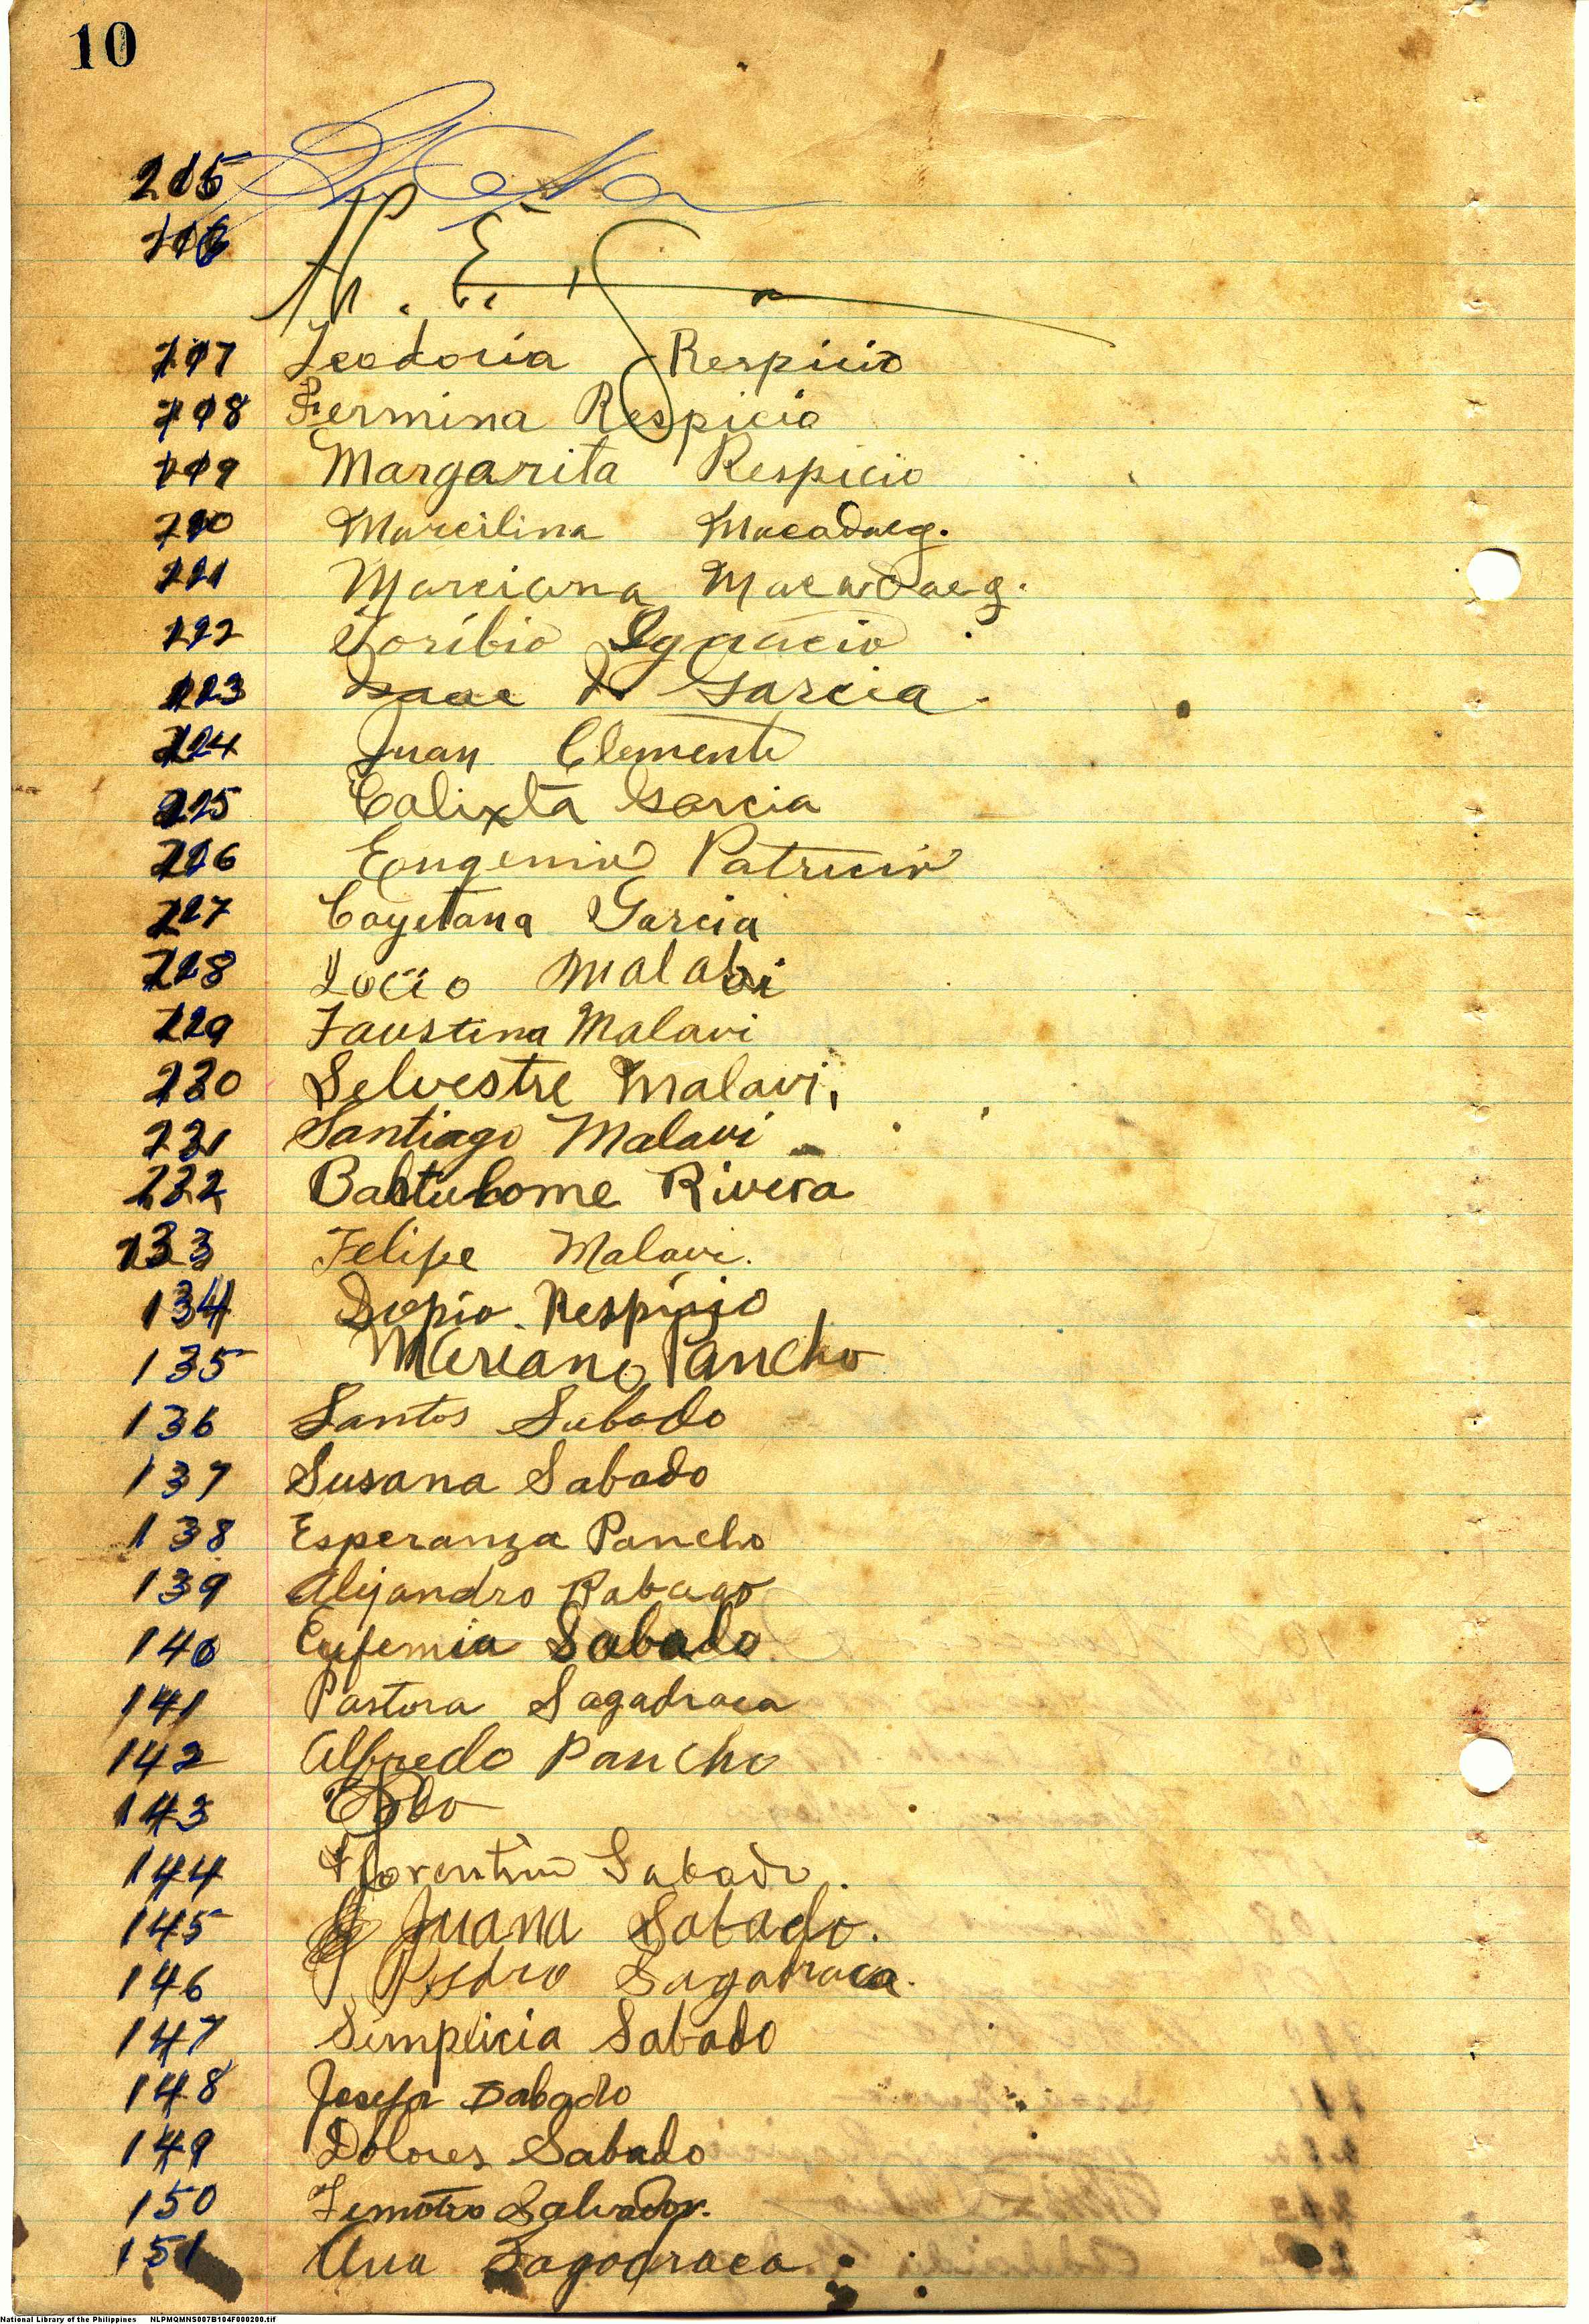 10
215
216
217 Teodoria Respicio
218 Fermina Respicio
219 Margarita Respicio
220 Marcilina Macadaeg.
221 Marciana Macadaeg.
222 Toribio Ygnacio
223 Isaac Garcia.
224 Juan Clemente
225 Calixta Garcia
226 Eugenio Patricio
227 Cayetana Garcia
228 Locio Malabi
229 Faustina Malavi
230 Selvestre Malavi,
231 Santiago Malavi
232 Rivera
233 Felipe Malavi.
134 Respicio
135 Mareano Pancho
136 Santos Sabado
137 Susana Sabado
138 Esperanza Pancho
139 Alijandro Rabago
140 Eufemia Sabado
141 Pastora Sagadraca
142 Alfredo Pancho
143
144 Florentino Sabado.
145 Juana Sabado.
146 Pedro Sagadraca.
147 Simplicia Sabado
148 Josefa Sabado
149 Dolores Sabado
150 Temoteo Salvador.
151 Ana Sagadraca.
National Library of the Philippines NLPMQMNS007B104F000200.tif